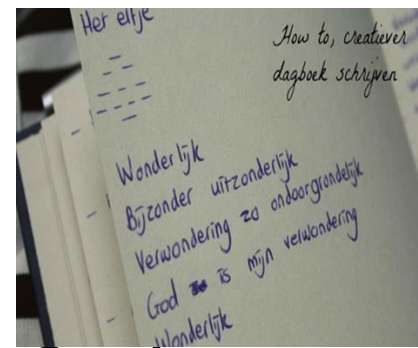 Het elfje
How to, creatiever
dagboek schrijven
Wonderlijk
Bijzonder uitzonderlijk
Verwondering zo ondoorgrondelijk
God is mijn verwondering
Wonderlijk